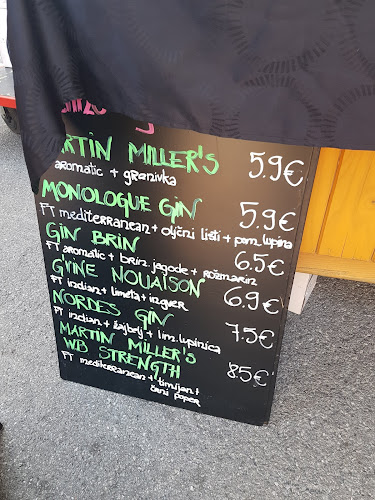 MARTIN MILLER'S 5.9€
aromatic + granivka
MONOLOGUE GIN 5.9€
FT mediterranean + oljčni listi + pom. lupina
GIN BRIN 6.5€
FT aromatic + brin. jagode + rožmarin
G'VINE NOUAISON 6.9€
FT indian + limeta + ingver
NORDES GIN 7.5€
FT indian + žajbelj + lim. lupinica
MARTIN MILLER'S
W.B. STRENGTH 8.5€
FT mediterranean + timijan +
črni poper